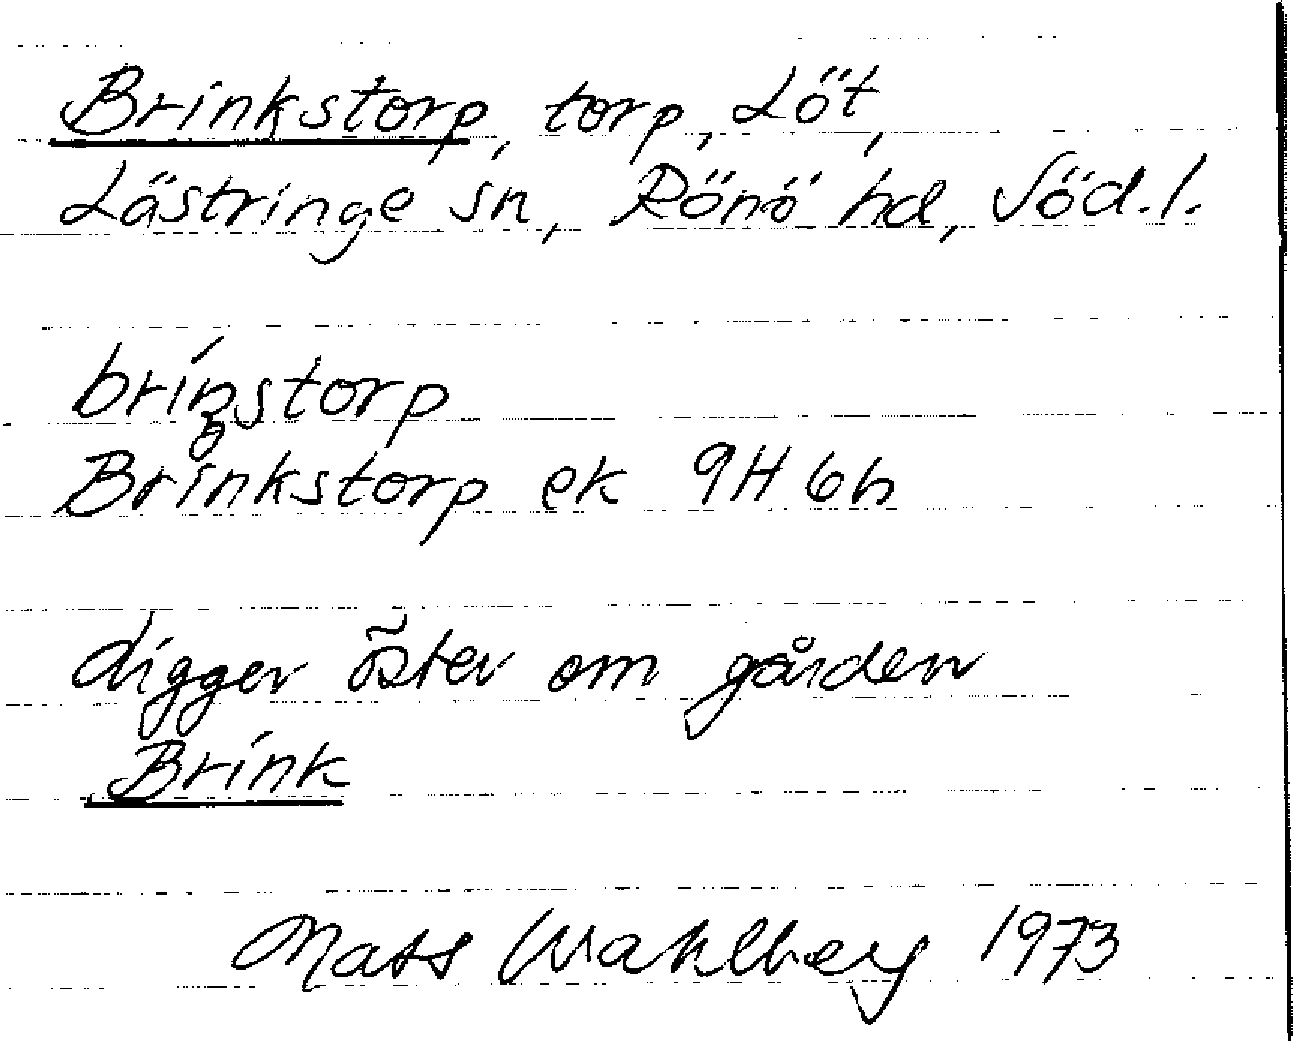 Brinkstorp, torp, Löt,
Lästringe sn, Rönö hd, Söd.l.
Brinkstorp ek 9H 6h
ligger öster om gården
Brink
Mats Wahlberg 1973